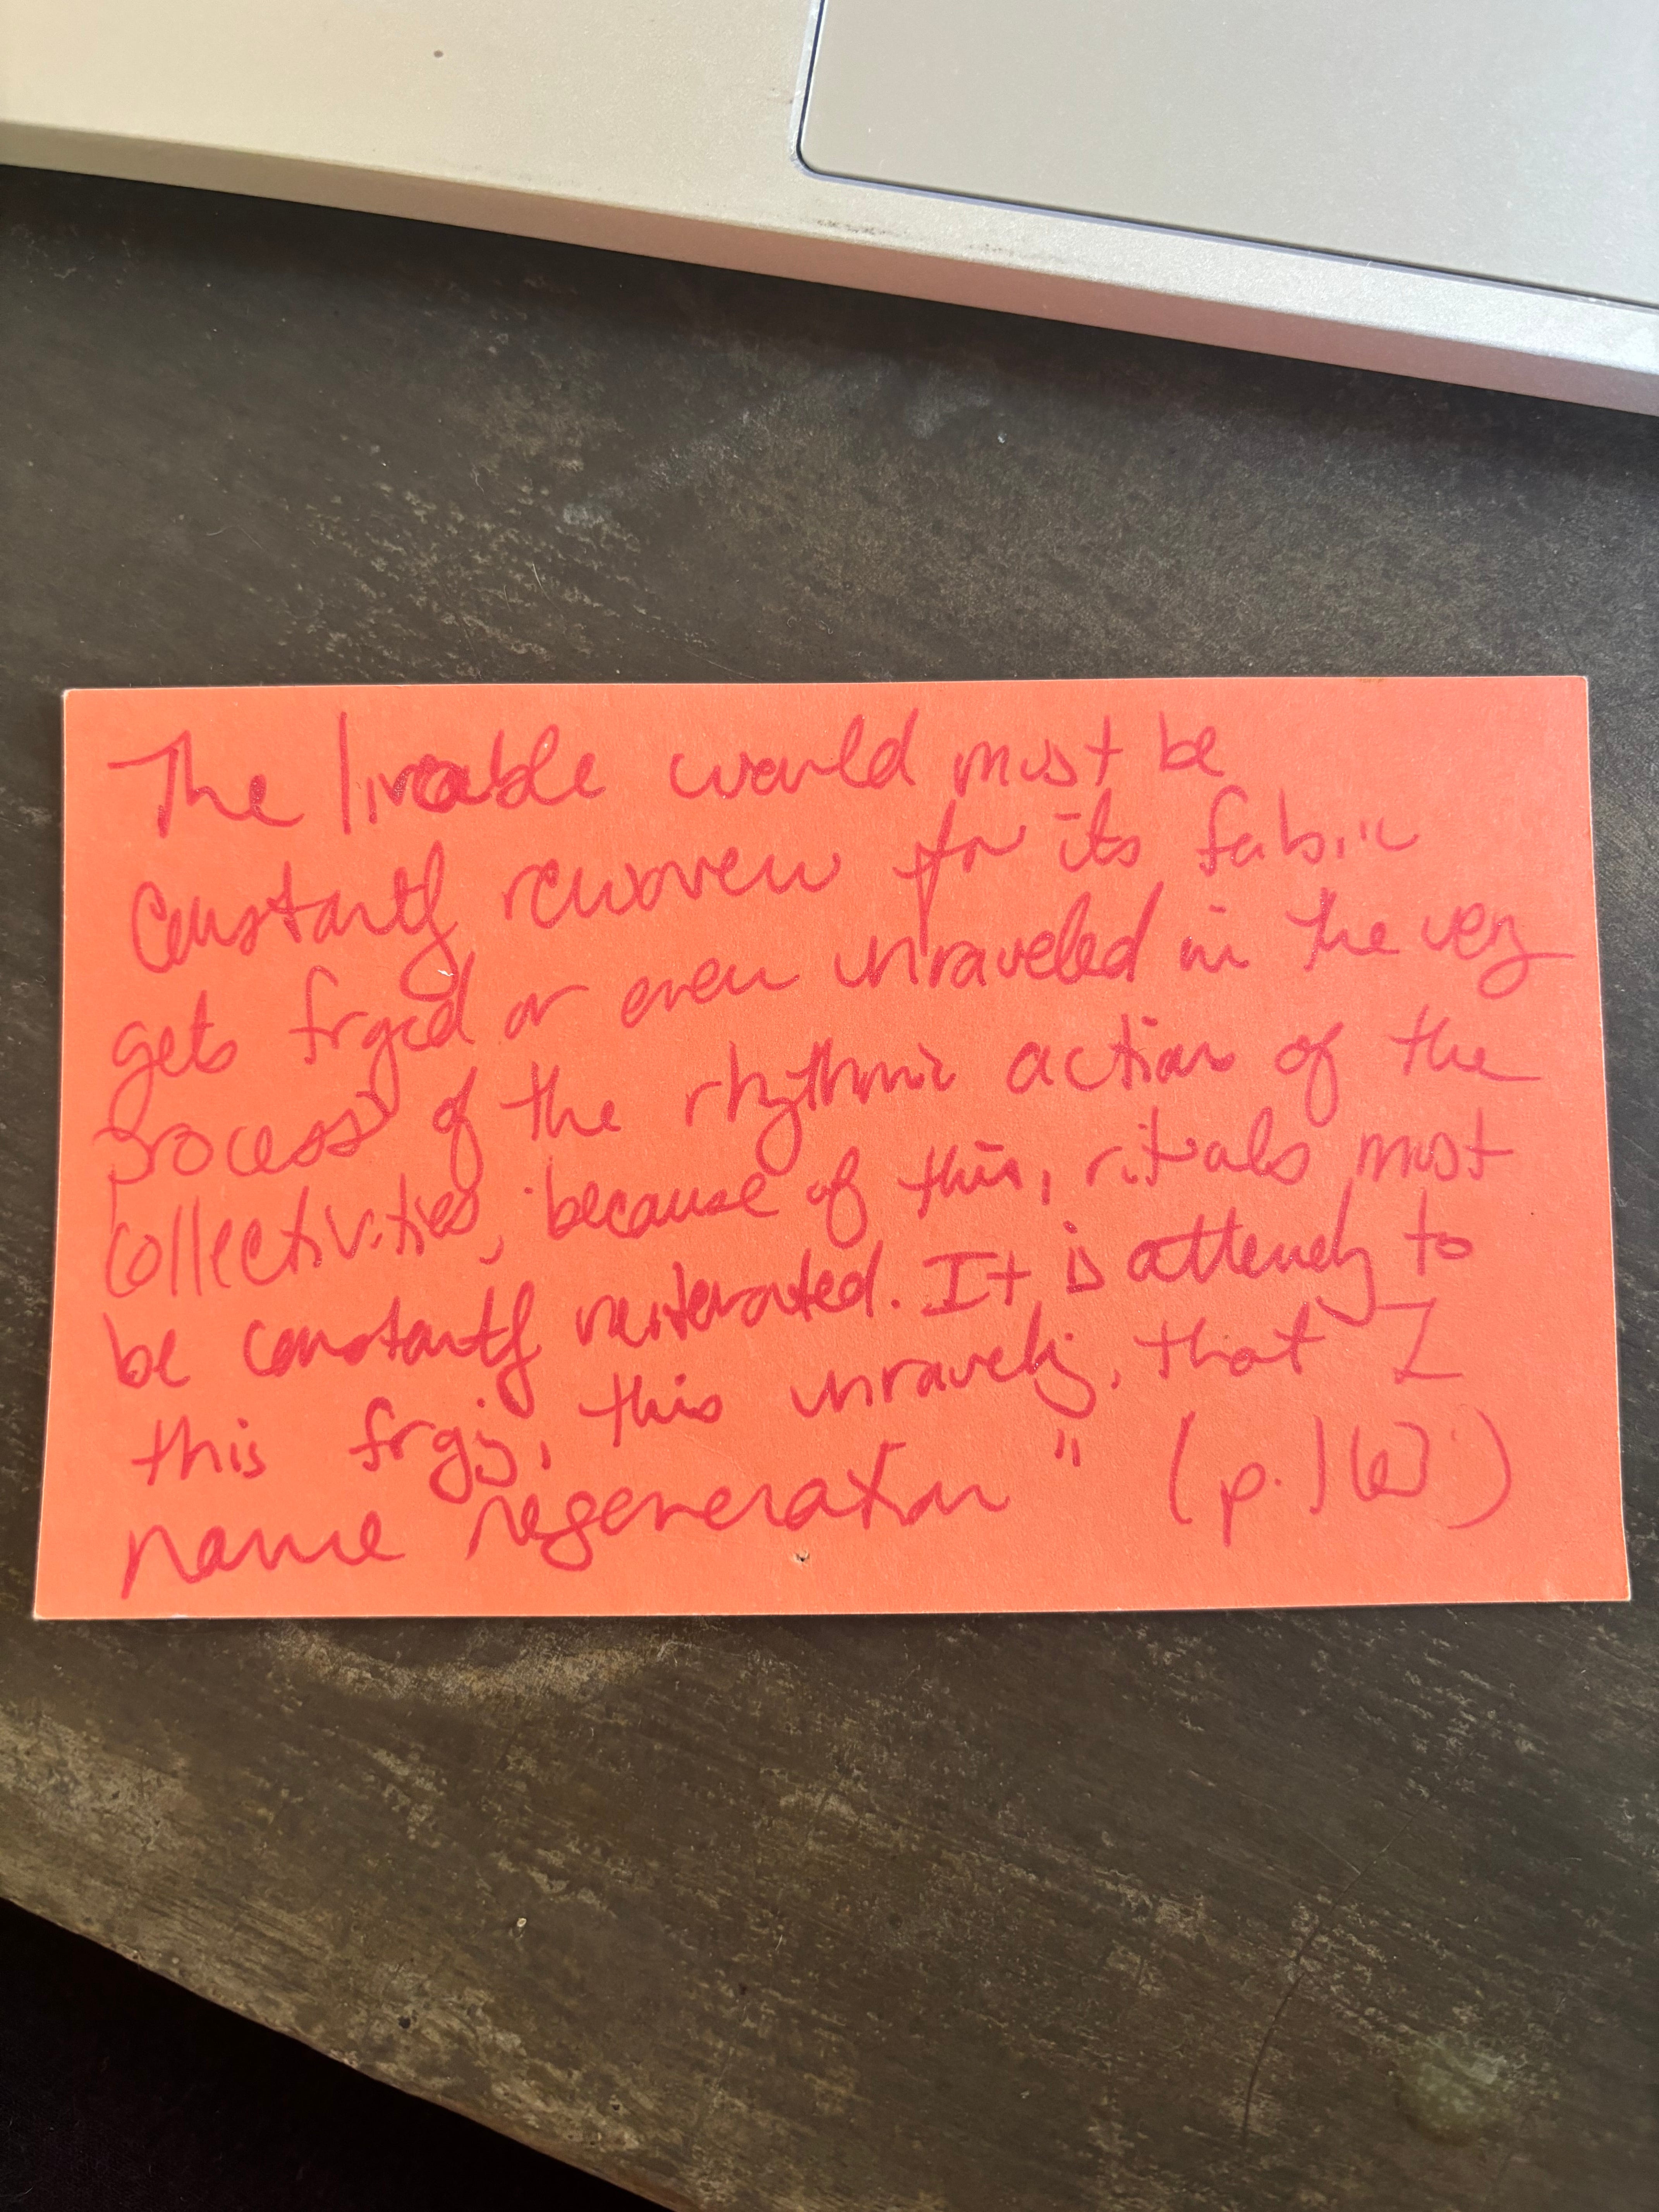 The livable world must be
constantly rewoven for its fabric
gets frayed or even unraveled in the very
process of the rhythmic action of the
collectivities, because of this, rituals must
be constantly reiterated. It is attending to
this fraying, this unraveling, that I
name regeneration" (p. 163)